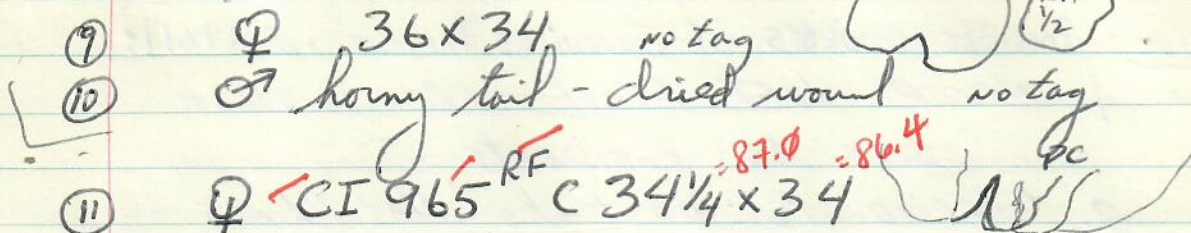 ⑨ ♀ 36 x 34 no tag 1/2
⑩ ♂ horny tail - dried wound no tag
⑪ ♀ ✓CI 965 ✓RF C 34 1/4 x 34 =87.0 =86.4 PC